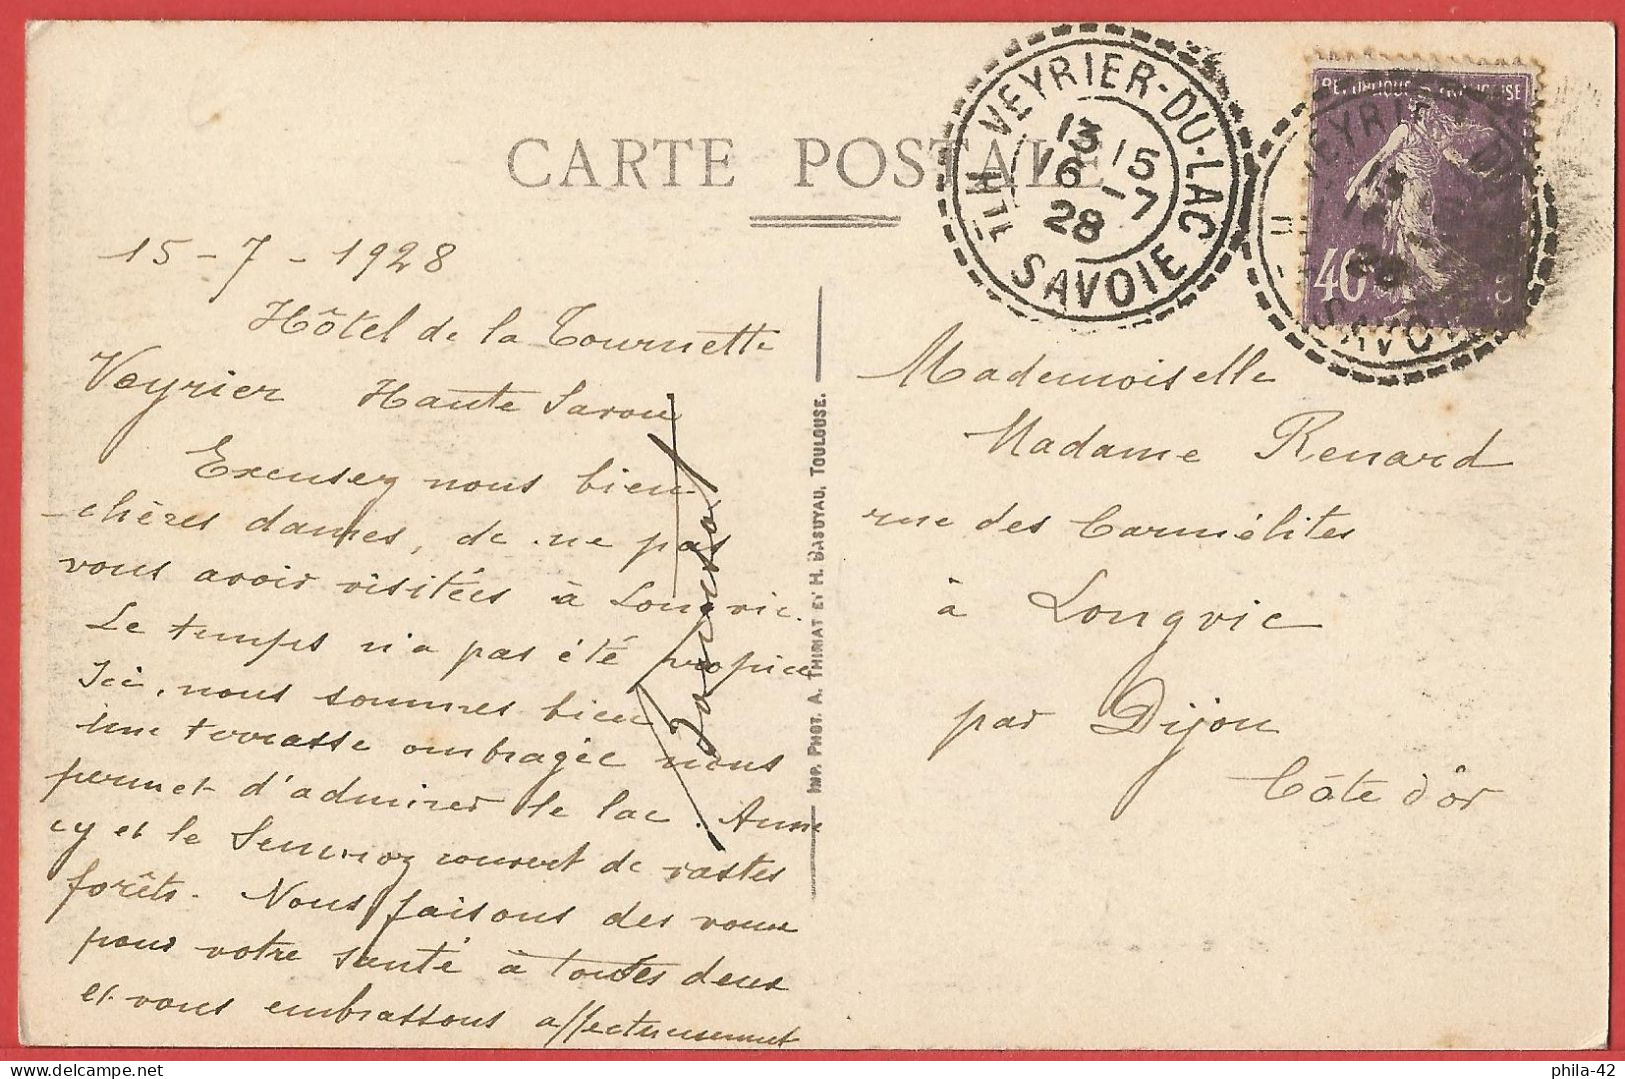 CARTE POSTALE
VEYRIER-DU-LAC
13 15
16 -7
28
Hte SAVOIE
REPUBLIQUE FRANÇAISE
40
15-7-1928
Hôtel de la Tournette
Veyrier Haute Savoie
Excusez nous bien
chères dames, de ne pas
vous avoir visitées à Longvic.
Le temps n'a pas été propice
Ici, nous sommes bien
une terrasse ombragée nous
permet d'admirer le lac. Anne
cy et le Semnoz couvert de vastes
forêts. Nous faisons des vœux
pour votre santé à toutes deux
et vous embrassons affectueusement
IMP. PHOT. A. THIRIAT ET H. BASUYAU, TOULOUSE.
Mademoiselle
Madame Renard
rue des Carmélites
à Longvic
par Dijon
Côte d'or
phila-42